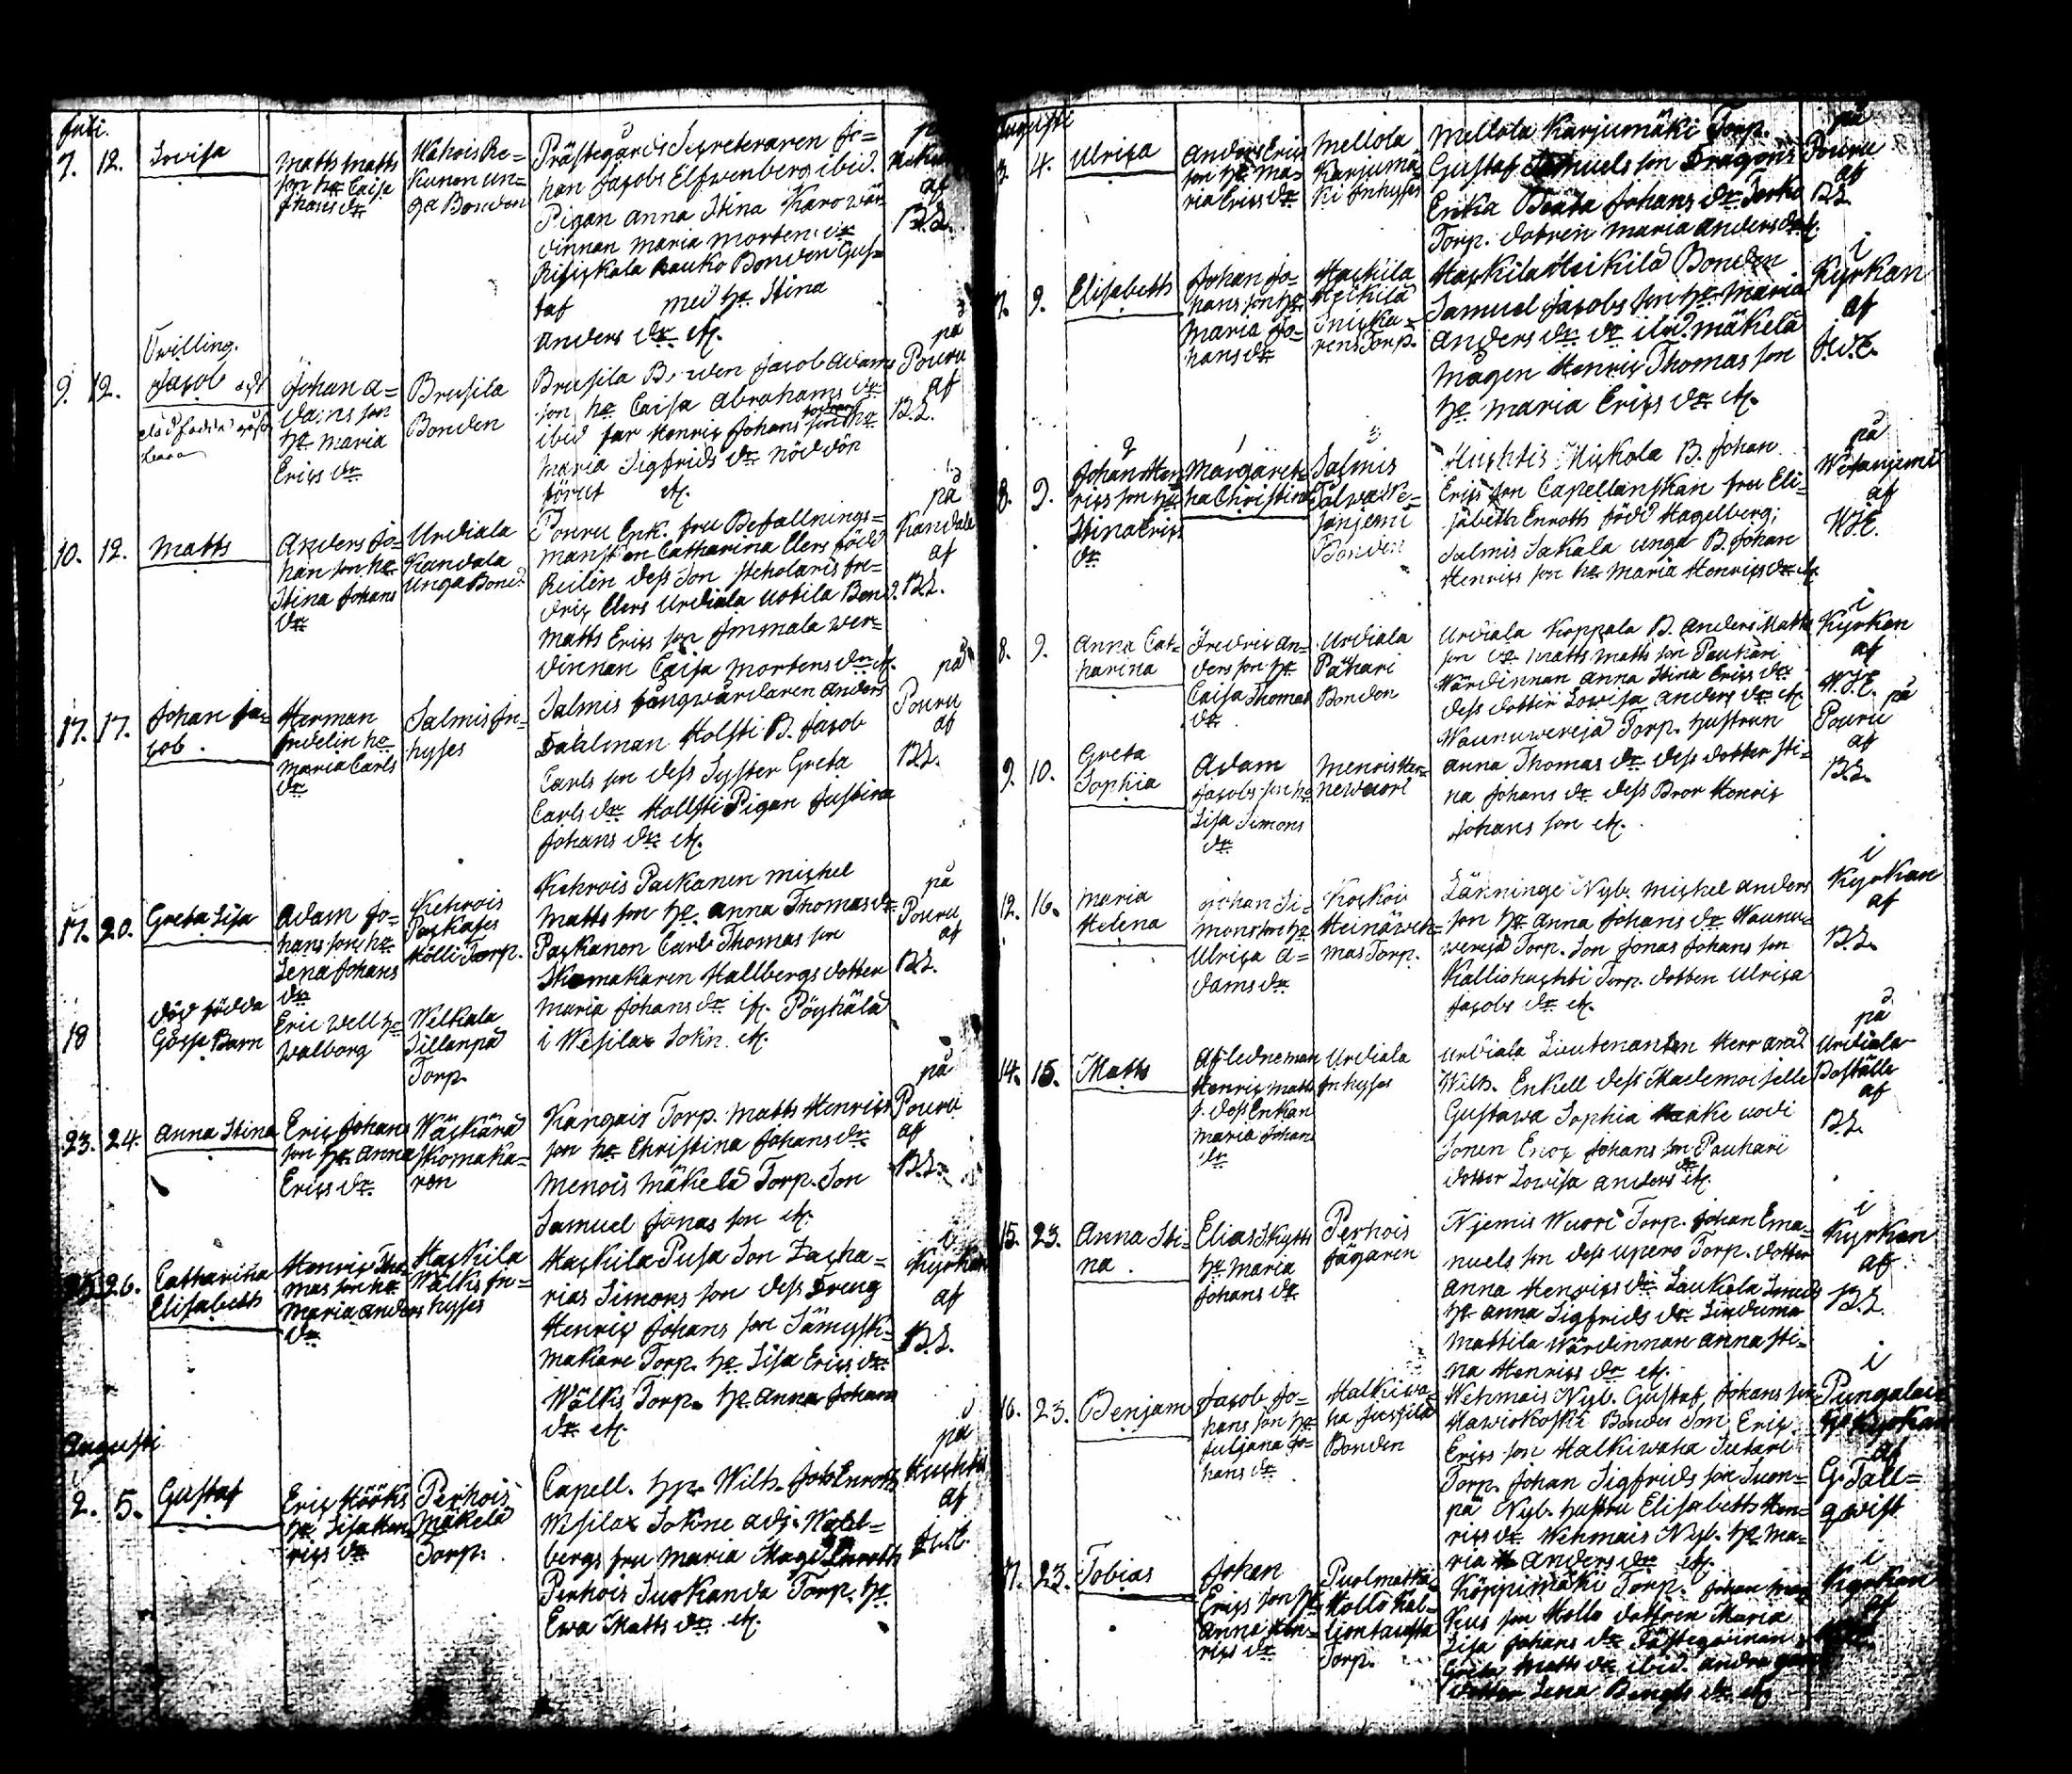 Juli.
7. 12. Lovisa
Matts Matts
son h:o Caisa
Johans d:r
Wahois Re=
kunen un=
ga Bonden
Prästegårds Secreteraren Jo=
han Jacobs Elfwenberg ibid.
Pigan Anna Stina Karo wär
dinnan Maria Mortens d:r
Rauko Bonden Gus=
taf med h:o Stina
Anders d:r etc.
på
af
B.L.
9. 12. Twilling.
Jacob
Johan A=
dams son
h:o Maria
Erics d:r
Brusila
Bonden
Brusila Bonden Jacob Adams
son h:o Caisa Abrahams d:r
ibid far Henric Johans son h:o
Maria Sigfrids d:r nöddöp
förut etc.
på
Pouru
af
B.L.
10. 12. Matts
Anders Jo=
han son h:o
Stina Johans
d:r
Urdiala
Kandala
unga Bond.
Pouru Enk. fru Befallnings=
Catharina Elers född
Reilin dess Son Scholaris Fre=
dric Elers Urdiala Uotila Bond.
Matts Erics son Jmmala wer=
dinnan Caisa Mortens d:r etc.
på
Kandala
af
B.L.
17. 17. Johan Ja=
cob.
Herman
h:o
Maria Carls
d:r
Salmis Jn=
hyses
Salmis fångwårdaren Anders
Dahlman Holsti B. Jacob
Carls son dess Syster Greta
Carls d:r Hollsti Pigan Justina
Johans d:r etc.
på
Pouru
af
B.L.
17. 20. Greta Lisa
Adam Jo=
hans son h:o
Lena Johans
d:r
Kehrois
Packases
Mölli Torp.
Kehrois Packanen Michel
Matts son h:o Anna Thomas d:r
Packanen Carls Thomas son
Skomakaren Hallbergs dotter
Maria Johans d:r etc. Pöyhälä
i Wesilax Sokn. etc.
på
Pouru
af
B.L.
18 död födda
Gosse Barn
Eric Well h:o
Walborg
Welkala
Sillanpä
Torp.
23. 24. Anna Stina
Eric Johans
son h:o Anna
Erics d:r
Wäskärä
Skomaka=
ren
Kangais Torp. Matts Henrics
son h:o Christina Johans d:r
Menois Mäkelä Torp. Son
Samuel Jonas son etc.
på
Pouru
af
B.L.
26. Catharina
Elisabeth
Henric Tho=
mas son h:o
Maria Anders
d:r
Hackila
Wälkis Jn=
hyses
Hackila Pusa Son Zacha=
rias Simons son dess Dreng
Henric Johans son Sämysk=
makare Torp. h:o Lisa Erics d:r
Wälkis Torp. h:o Anna Johans
d:r etc.
i
Kyrkan
af
B.L.
Augusti
2. 5. Gustaf
Eric Höökis
h:o Lisa Hen=
rics d:r
Perhois
Mäkelä
Torp.
Capell. H:r Wilh. Joh. Enroth
Wesilax Sokne adj.
bergs fru Maria Magd. Enroth
Perhois Suokanda Torp. h:o
Ewa Matts d:r etc.
på
Huchtis
af
Augusti
3. 4. Ulrica
Anders Erics
son h:o Ma=
ria Erics d:r
Mellola
Karjumä=
ki Jnhyses
Mellola Karjumäki Torp.
Gustaf Samuels son Dragons
Erika Beata Johans d:r
Torp. dotren Maria Anders d:r etc.
på
Pouru
af
B.L.
7. 9. Elisabeth
Johan Jo=
hans son h:o
Maria Jo=
hans d:r
Hackila
Heikilä
Snicka=
rens Torp.
Hackila Heikilä Bonden
Samuel Jacobs son h:o Maria
Anders d:r d:o ibid. Mäkelä
Mågen Henric Thomas son
h:o Maria Erics d:r etc.
i
Kyrkan
af
8. 9. Johan Hen
rics son h:o
Stina Erics
d:r
Margaret=
ha Christina
Salmis
Bonden
Huchtis Mickola B. Johan
Erics son Capellanskan fru Eli=
sabeth Enroth född Hagelberg;
Salmis Sakala unga B. Johan
Henrics son h:o Maria Henrics d:r etc.
på
af
W.J.E.
8. 9. Anna Cat=
harina
Fredric An=
ders son h:o
Caisa Thomas
d:r
Urdiala
Pauhari
Bonden
Urdiala Koppala B. Anders Matts
son d:o Matts Matts son Pauhari
Wärdinnan Anna Stina Erics d:r
dess dotter Lowisa Anders d:r etc.
i
Kyrkan
af
W.J.E.
9. 10. Greta
Sophia
Adam
Jacobs son h:o
Lisa Simons
d:r
Menois Har=
newuori
Waunuwereja Torp. hustrun
Anna Thomas d:r dess dotter Sti=
na Johans d:r dess Bror Henric
Johans son etc.
på
Pouru
af
B.L.
12. 16. Maria
Helena
Johan Si=
mons son h:o
Ulrica A=
dams d:r
Koskois
Heinäweh=
mas Torp.
Länninge Nyb. Michel Anders
son h:o Anna Johans d:r Waunu=
wereja Torp. Son Jonas Johans son
Kalliohuchti Torp. dotren Ulrica
Jacobs d:r etc.
i
Kyrkan
af
B.L.
14. 15. Matts
Afledne man
Henric Matts
s. dess Enkan
Maria Johans
d:r
Urdiala
Jnhyses
Urdiala Lieutenanten Herr Arvid
Wilh. Enkell dess Mademoiselle
Gustawa Sophia
Sonen Enoc Johans son Pauhari
dotter Lowisa Anders d:r etc.
på
Urdiala
Boställe
af
B.L.
15. 23. Anna Sti=
na.
Elias Skytt
h:o Maria
Johans d:r
Perhois
Jägaren
Njemis Wuori Torp. Johan Ema=
nuels son dess upero Torp. dotter
Anna Henrics d:r Laukola Smeds
h:o Anna Sigfrids d:r
Mattila Wärdinnan Anna Sti=
na Henrics d:r etc.
i
Kyrkan
af
B.L.
16. 23. Benjam
Jacob Jo=
hans son h:o
Juljana Jo=
hans d:r
Halkiwa=
ha Jussila
Bonden
Wehmais Nyb. Gustaf Johans son
Hawiokoski Bonde Son Eric
Erics son Halkiwaha Sutari
Torp. Johan Sigfrids son Suon=
pä Nyb. hustru Elisabeth Hen=
rics d:r Wehmais Nyb. h:o Ma=
ria Anders d:r etc.
i
Pungalais
Kyrkan
af
G. Tall=
qwist
17. 23. Tobias
Johan
Erics son h:o
Anna Hen=
rics d:r
Puolmatka
Hollo Kal=
liontausta
Torp.
Köppimäki Torp. Johan Mar
kus son Hollo dottren Maria
Lisa Johans d:r
Greta Matts d:r ibid. andra
dotter Lena Bengts d:r etc.
i
Kyrkan
af